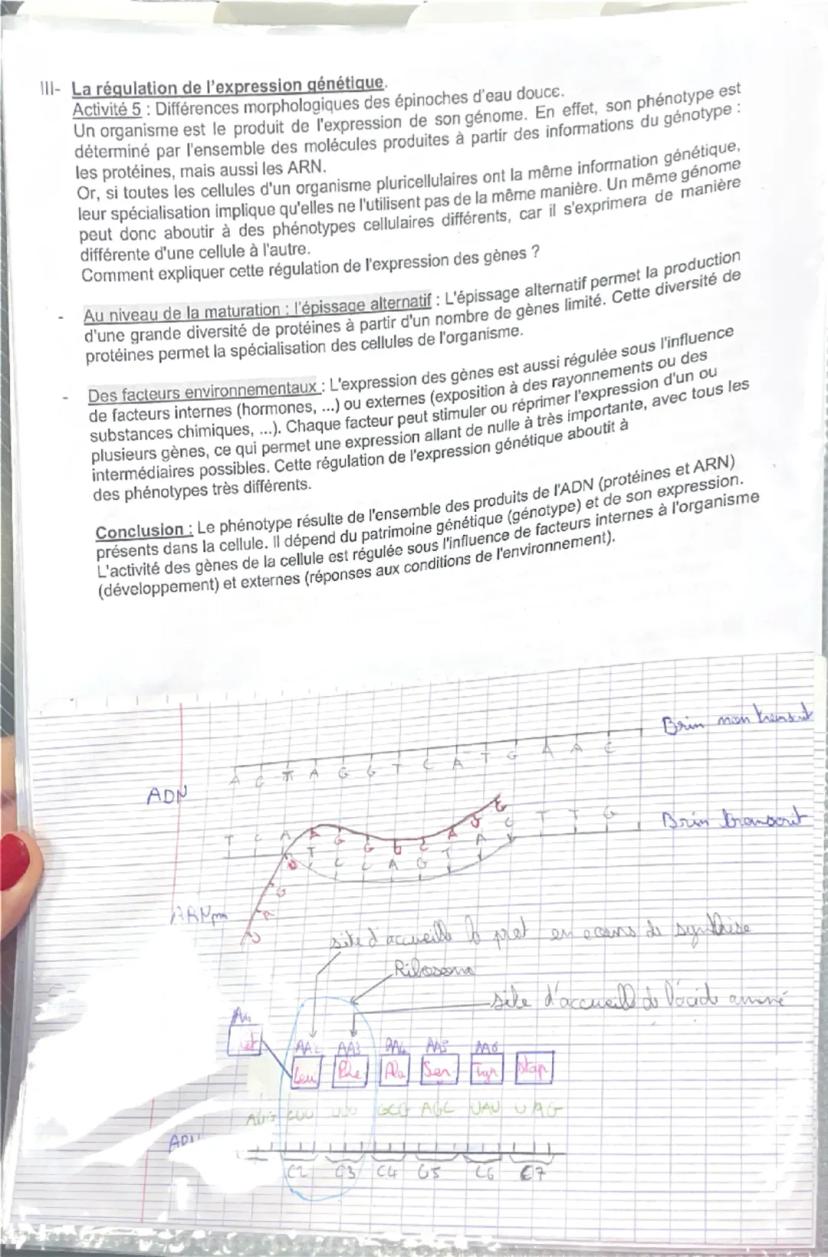 III- La régulation de l'expression génétique.
Activité 5 : Différences morphologiques des épinoches d'eau douce.
Un organisme est le produit de l'expression de son génome. En effet, son phénotype est
déterminé par l'ensemble des molécules produites à partir des informations du génotype :
les protéines, mais aussi les ARN.
Or, si toutes les cellules d'un organisme pluricellulaires ont la même information génétique,
leur spécialisation implique qu'elles ne l'utilisent pas de la même manière. Un même génome
peut donc aboutir à des phénotypes cellulaires différents, car il s'exprimera de manière
différente d'une cellule à l'autre.
Comment expliquer cette régulation de l'expression des gènes ?
- Au niveau de la maturation : l'épissage alternatif : L'épissage alternatif permet la production
d'une grande diversité de protéines à partir d'un nombre de gènes limité. Cette diversité de
protéines permet la spécialisation des cellules de l'organisme.
- Des facteurs environnementaux : L'expression des gènes est aussi régulée sous l'influence
de facteurs internes (hormones, ...) ou externes (exposition à des rayonnements ou des
substances chimiques, ...). Chaque facteur peut stimuler ou réprimer l'expression d'un ou
plusieurs gènes, ce qui permet une expression allant de nulle à très importante, avec tous les
intermédiaires possibles. Cette régulation de l'expression génétique aboutit à
des phénotypes très différents.
Conclusion : Le phénotype résulte de l'ensemble des produits de l'ADN (protéines et ARN)
présents dans la cellule. Il dépend du patrimoine génétique (génotype) et de son expression.
L'activité des gènes de la cellule est régulée sous l'influence de facteurs internes à l'organisme
(développement) et externes (réponses aux conditions de l'environnement).
Brin non transcrit
A G G T C A T G A A C
ADN
Brin transcrit
T C A T T G
T C C A G T A C
ARNpm
site d'accueille la prot en cours de synthèse
Ribosome
site d'accueill de l'acide aminé
AA2 AA3 AA4 AA5 AA6
Leu Phe Ala Ser Tyr Stop
AUG CUU UUU GCG AGC UAU UAG
C2 C3 C4 C5 C6 C7